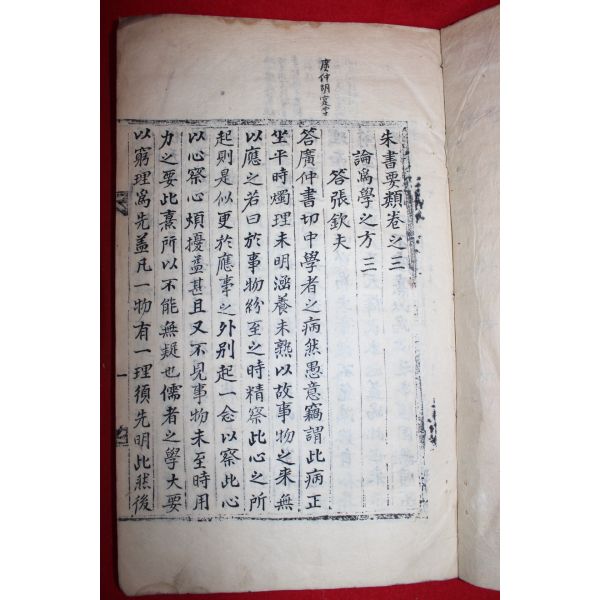 朱書要類卷之三
論爲學之方 三
答張欽夫
答廣仲書切中學者之病然愚意竊謂此病正
坐平時燭理未明涵養未熟以故事物之來無
以應之若曰於事物紛至之時精察此心之所
起則是似更於應事之外別起一念以察此心
以心察心煩擾益甚且又不見事物未至時用
力之要此熹所以不能無疑也儒者之學大要
以窮理爲先盖凡一物有一理須先明此然後
廣仲胡寔字
一